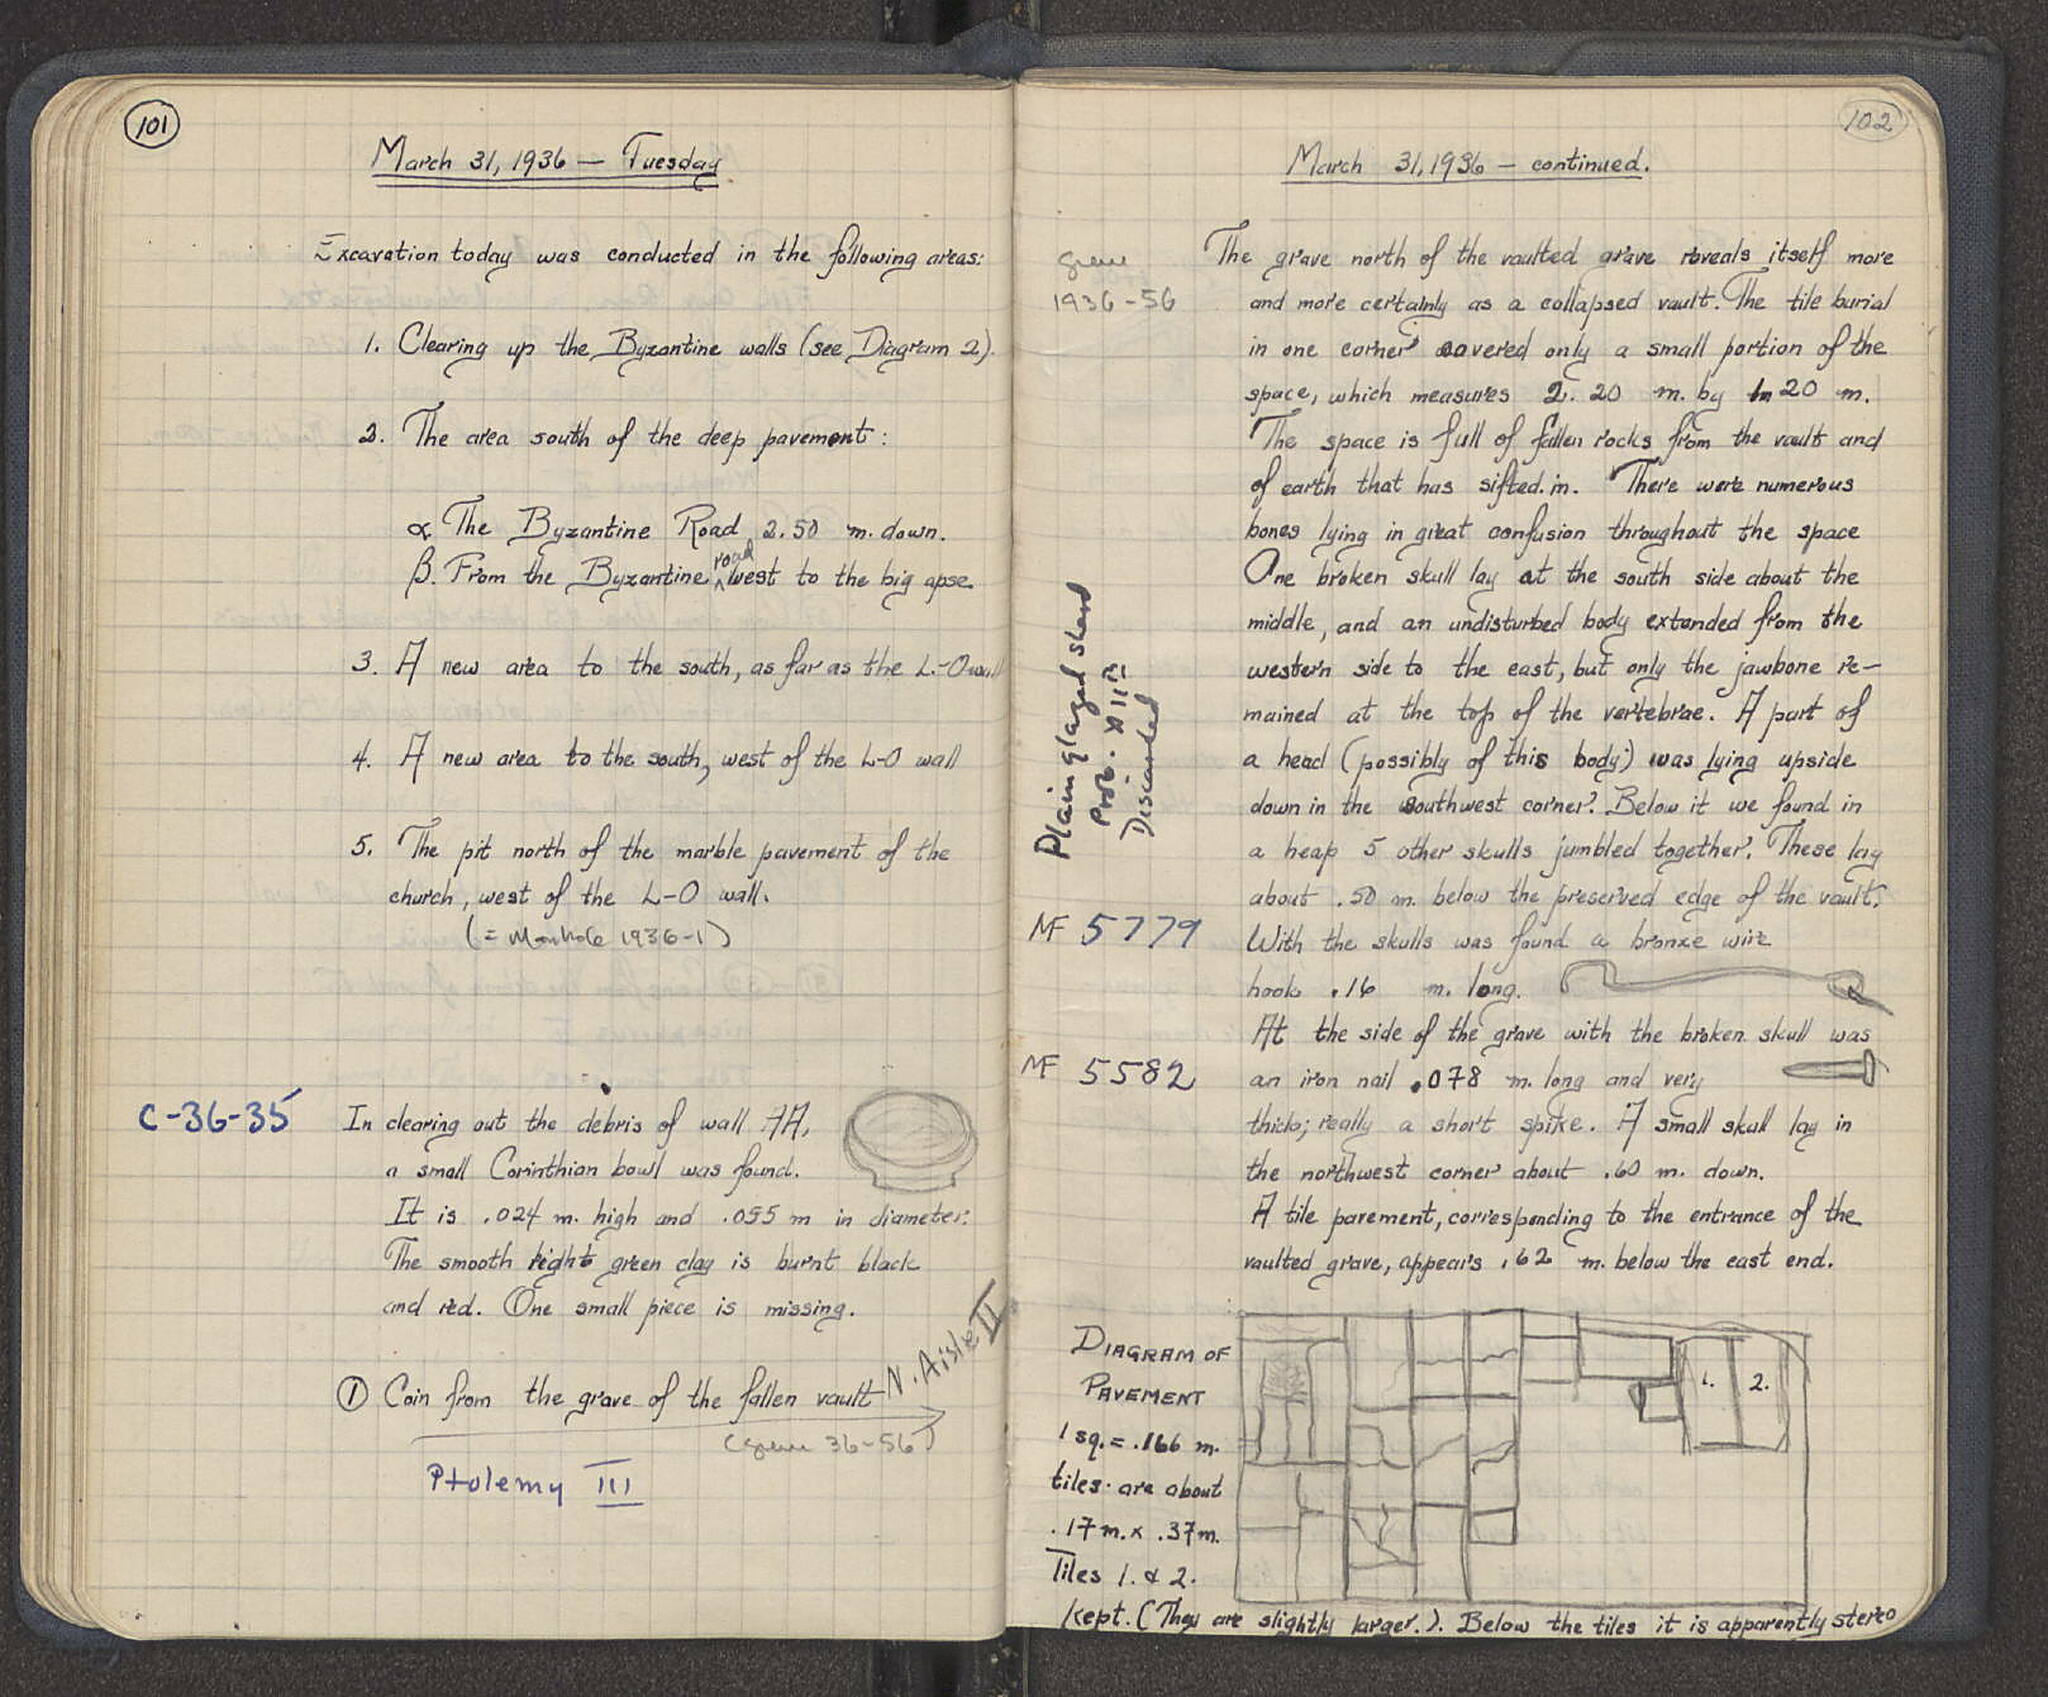 101
March 31, 1936 — Tuesday
Excavation today was conducted in the following areas:
1. Clearing up the Byzantine walls (see Diagram 2).
2. The area south of the deep pavement:
α The Byzantine Road 2.50 m. down.
β. From the Byzantine road west to the big apse
3. A new area to the south, as far as the L-O wall
4. A new area to the south, west of the L-O wall
5. The pit north of the marble pavement of the
church, west of the L-O wall.
(= Manhole 1936-1)
C-36-35
In clearing out the debris of wall AA,
a small Corinthian bowl was found.
It is .024 m. high and .055 m in diameter.
The smooth light green clay is burnt black
and red. One small piece is missing.
① Coin from the grave of the fallen vault
N. Aisle II
(grave 36-56)
Ptolemy III
102
March 31, 1936 — continued.
grave
1936-56
The grave north of the vaulted grave reveals itself more
and more certainly as a collapsed vault. The tile burial
in one corner covered only a small portion of the
space, which measures 2.20 m. by 20 m.
The space is full of fallen rocks from the vault and
of earth that has sifted in. There were numerous
bones lying in great confusion throughout the space
One broken skull lay at the south side about the
middle, and an undisturbed body extended from the
western side to the east, but only the jawbone re-
mained at the top of the vertebrae. A part of
a head (possibly of this body) was lying upside
down in the southwest corner. Below it we found in
a heap 5 other skulls jumbled together. These lay
about .50 m. below the preserved edge of the vault.
Plain glazed sherd
Prob. XII
Discarded
MF 5779
With the skulls was found a bronze wire
hook .16 m. long.
At the side of the grave with the broken skull was
MF 5582
an iron nail .078 m. long and very
thick; really a short spike. A small skull lay in
the northwest corner about .60 m. down.
A tile pavement, corresponding to the entrance of the
vaulted grave, appears .62 m. below the east end.
DIAGRAM OF
PAVEMENT
1 sq. = .166 m.
tiles are about
.17 m. x .37 m.
Tiles 1. & 2.
kept. (They are slightly larger.). Below the tiles it is apparently stereo
1.
2.